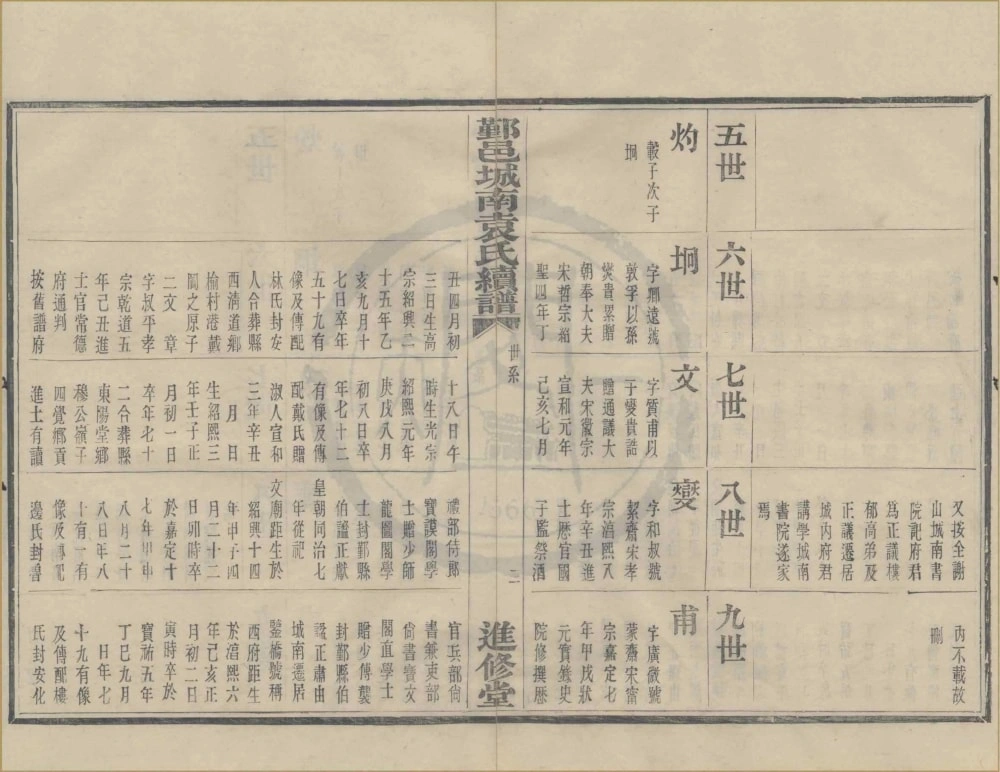 又按全謝
山城南書
院記府君
為正議樓
郁高弟及
正議遷居
城内府君
講學城南
書院遂家
焉
内不載故
刪
五世
灼
轂子次子
坰
六世
坰
字卿遠號
敦孚以孫
燮貴累贈
朝奉大夫
宋哲宗紹
聖四年丁
丑四月初
三日生高
宗紹興二
十五年乙
亥九月十
七日卒年
五十九有
像及傳配
林氏封安
人合葬縣
西清道鄉
榆村港載
閣之原子
二文 章
字叔平孝
宗乾道五
年己丑進
士官常德
府通判
按舊譜府
七世
文
字質甫以
子燮貴誥
贈通議大
夫宋徽宗
宣和元年
己亥七月
十八日午
時生光宗
紹熙元年
庚戌八月
初八日卒
年七十二
有像及傳
配戴氏贈
淑人宣和
三年辛丑
月 日
生紹熙三
年壬子正
月初一日
卒年七十
二合葬縣
東陽堂鄉
穆公嶺子
四覺鄉貢
進士有讀
八世
燮
字和叔號
絜齋宋孝
宗淳熙八
年辛丑進
士歷官國
子監祭酒
禮部侍郎
寶謨閣學
士贈少師
龍圖閣學
士封鄞縣
伯諡正獻
皇朝同治七
年從祀
文廟距生於
紹興十四
年甲子四
月二十二
日卯時卒
於嘉定十
七年甲申
八月二十
八日年八
十有一有
像及傳配
邊氏封碩
九世
甫
字廣微號
蒙齋宋甯
宗嘉定七
年甲戌狀
元實錄史
院修撰歷
官兵部尚
書兼吏部
尚書寶文
閣直學士
贈少傅襲
封鄞縣伯
諡正肅由
城南遷居
鑒橋號稱
西府距生
於淳熙六
年己亥正
月初二日
寅時卒於
寶祐五年
丁巳九月
日年七
十九有像
及傳配樓
氏封安化
鄞邑城南袁氏續譜
世系
二
進修堂